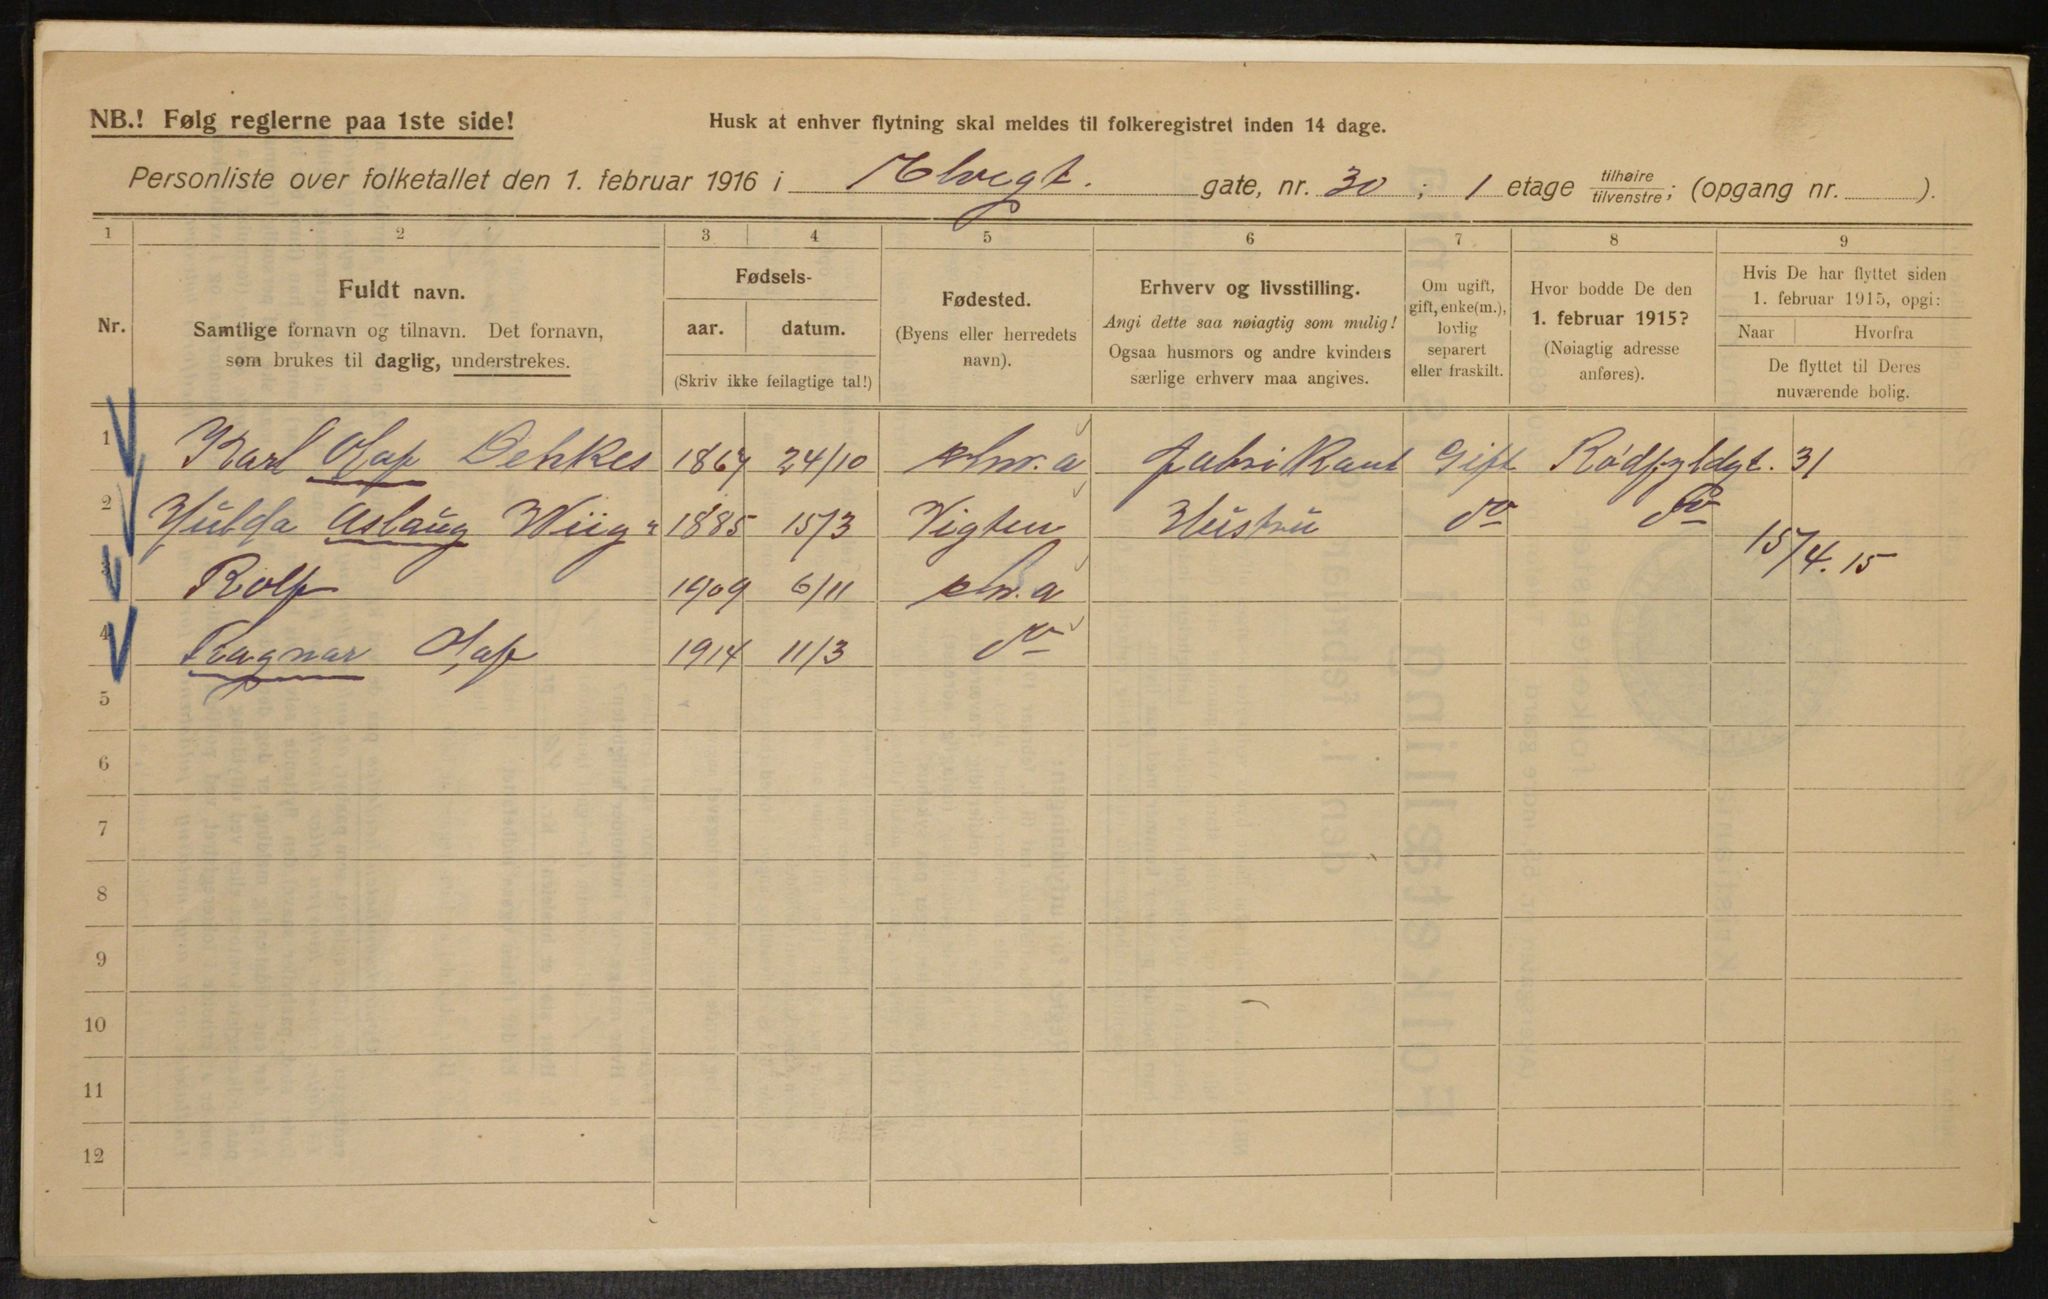 NB.! Følg reglerne paa 1ste side!
Husk at enhver flytning skal meldes til folkeregistret inden 14 dage.
Personliste over folketallet den 1. februar 1916 i Elvegt. gate, nr. 30 ; 1 etage tilhøire/tilvenstre; (opgang nr. ).
1 2 3 4 5 6 7 8 9
Nr.
Fuldt navn.
Samtlige fornavn og tilnavn. Det fornavn,
som brukes til daglig, understrekes.
Fødsels-
aar. datum.
(Skriv ikke feilagtige tal!)
Fødested.
(Byens eller herredets
navn).
Erhverv og livsstilling.
Angi dette saa nøiagtig som mulig!
Ogsaa husmors og andre kvinders
særlige erhverv maa angives.
Om ugift,
gift, enke(m.),
lovlig
separert
eller fraskilt.
Hvor bodde De den
1. februar 1915?
(Nøiagtig adresse
anføres).
Hvis De har flyttet siden
1. februar 1915, opgi:
Naar Hvorfra
De flyttet til Deres
nuværende bolig.
1 Karl Olaf Dehkes 1867 24/10 Kr.a Fabrikant Gift Rødfyldgt. 31
2 Hulda Aslaug Wiig 1885 15/3 Vigten Hustru do do
15/4.15
3 Rolf 1909 6/11 Kr.a
4 Ragnar Olaf 1914 11/3 do
5
6
7
8
9
10
11
12